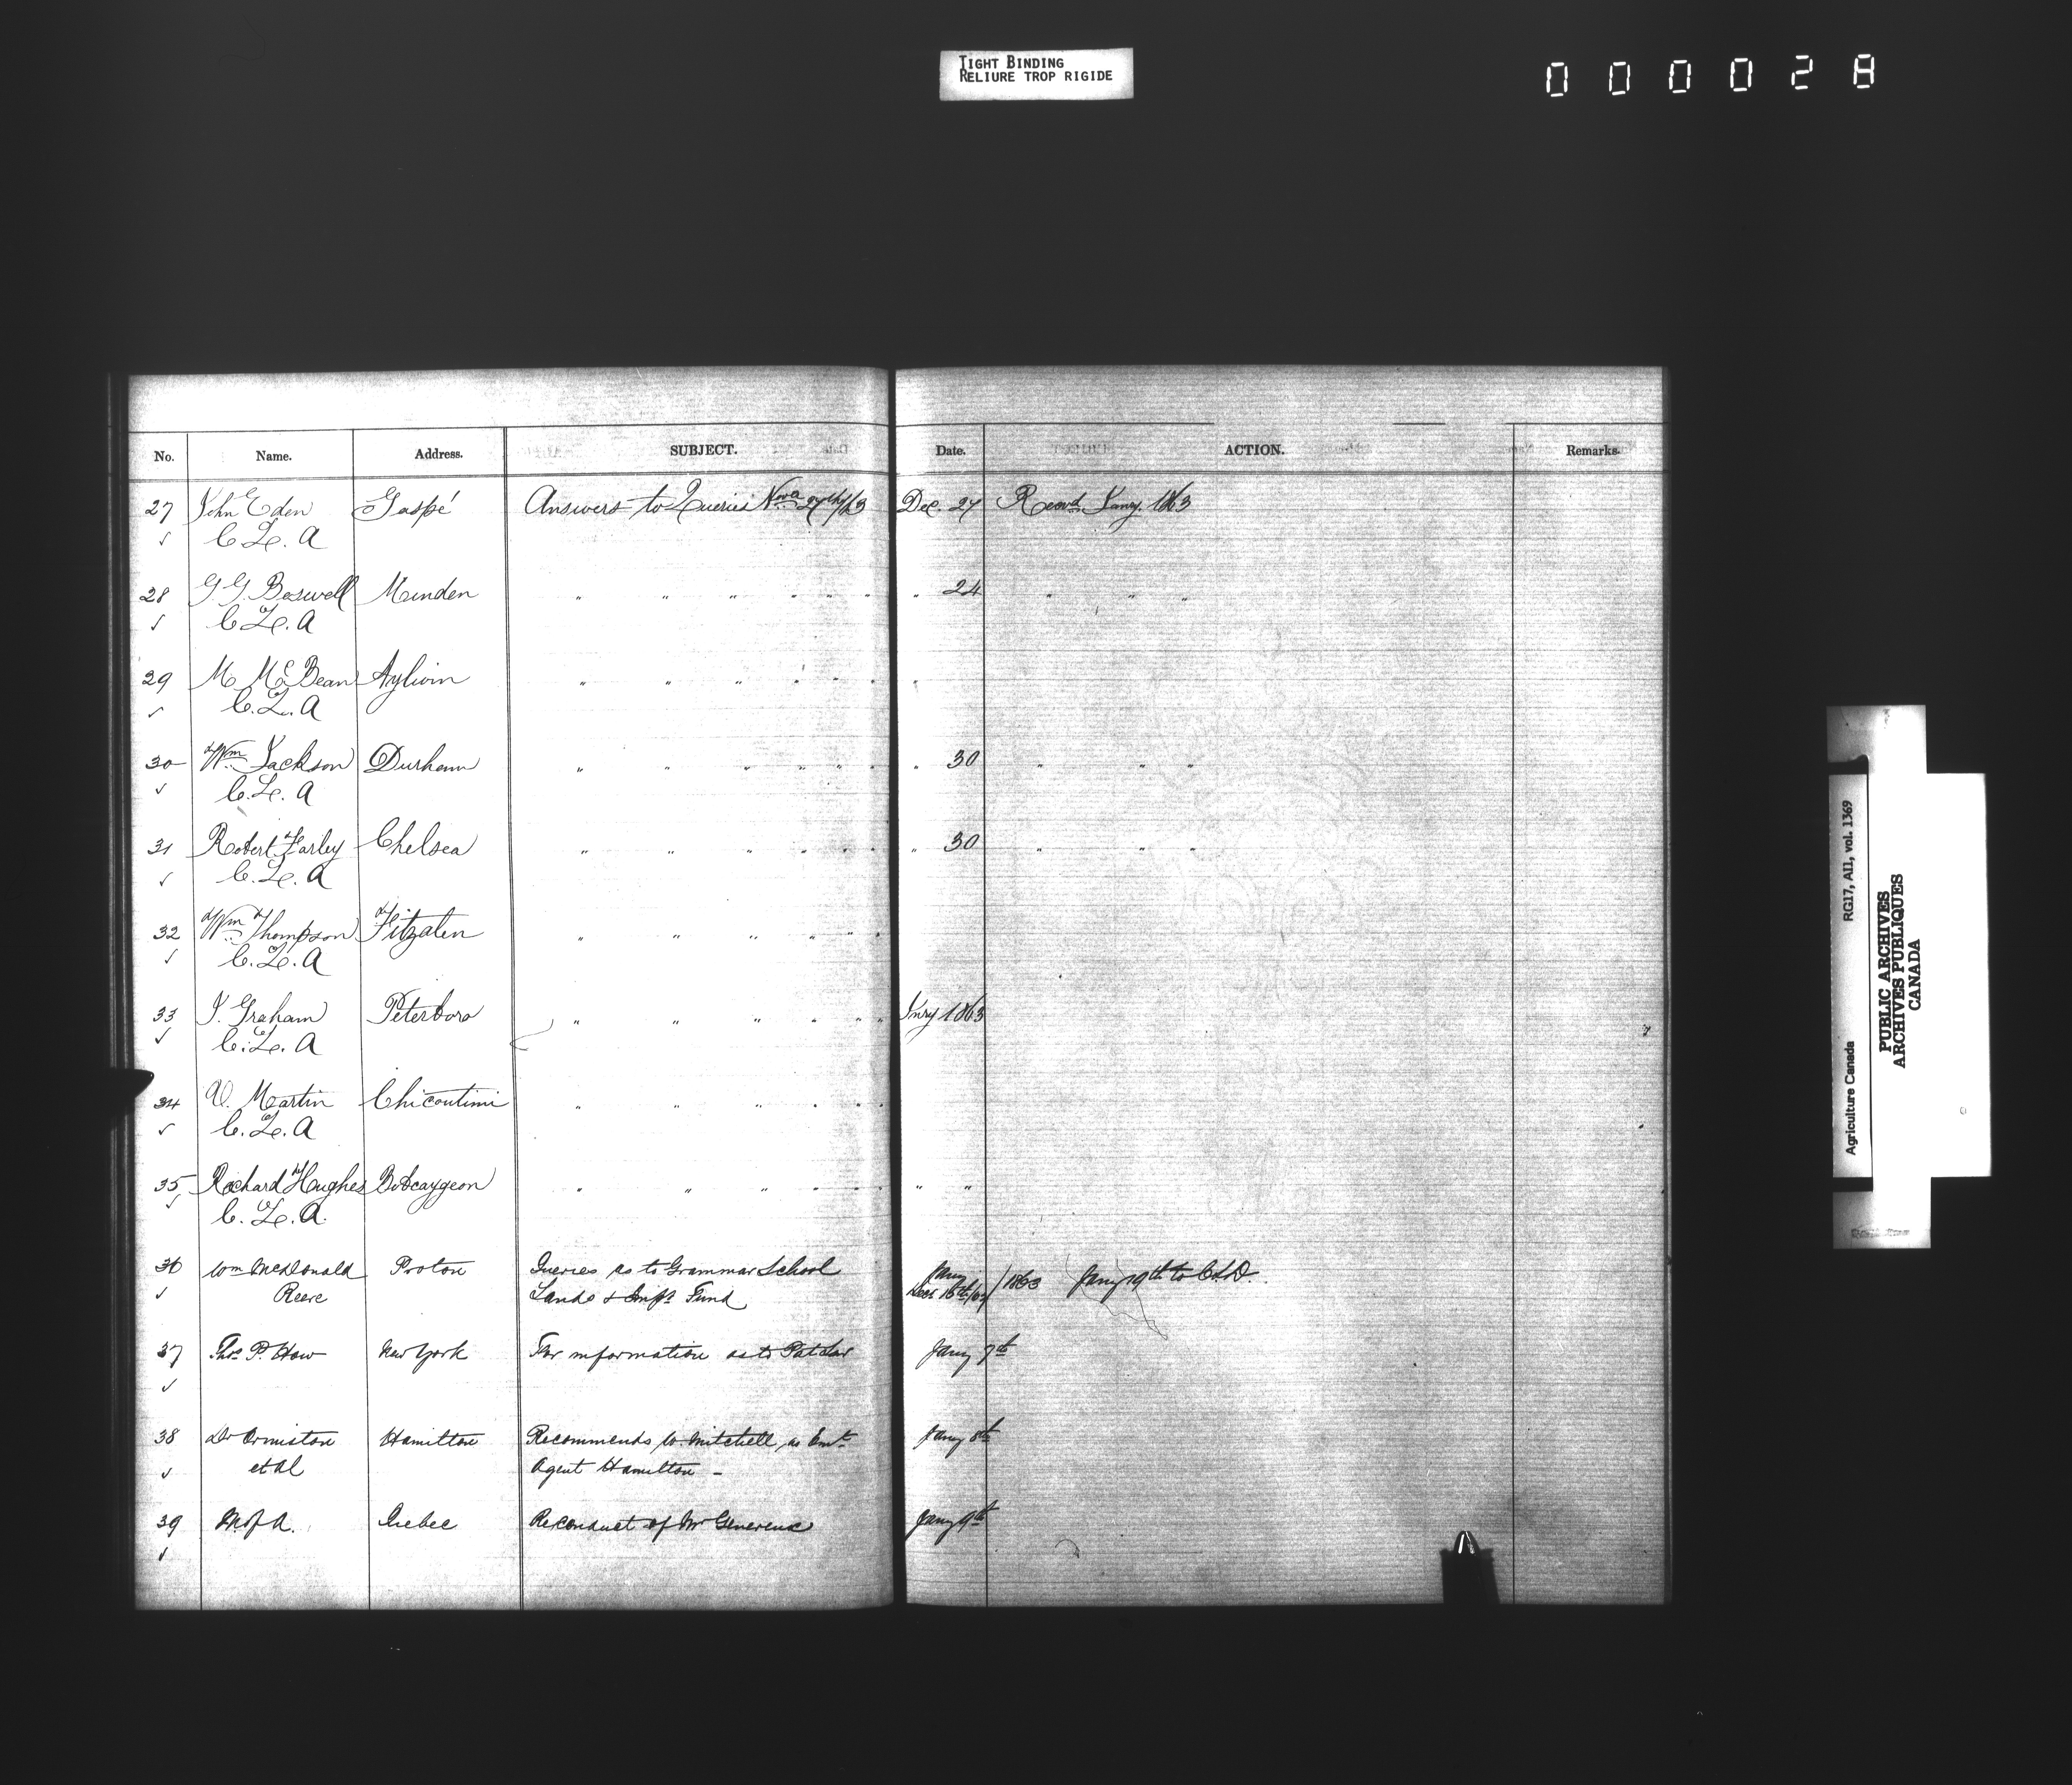 TIGHT BINDING
RELIURE TROP RIGIDE
0 0 0 0 2 8
No. Name. Address. SUBJECT. Date. ACTION. Remarks.
27 John Eden Gaspé Answers to Queries Dec. 27 Recvd Janry. 1863
✓ C. L. A
28 G. G. Boswell Minden " " " " " " " 24 " " "
✓ C. L. A
29 M. McBean Aylwin " " " " " " "
✓ C. L. A
30 Wm Jackson Durham " " " " " " " 30 " " "
✓ C. L. A
31 Robert Farley Chelsea " " " " " " " 30 " " "
✓ C. L. A
32 Wm Thompson Fitzalen " " " " " "
✓ C. L. A
33 J. Graham Peterboro " " " " " " Jnry 1863
✓ C. L. A
34 V. Martin Chicoutimi " " " " " "
✓ C. L. A
35 Richard Hughes Bobcaygeon " " " " " " " "
✓ C. L. A.
36 Wm McDonald Proton Queries as to Grammar School Jany /1863 Jany 19th to C.L.D.
✓ Reeve Lands & Impt Fund
37 Thos P. How New York For information as to Pat Law Jany 7th
✓
38 Dr Ormiston Hamilton Recommends W. Mitchell as Emt Jany 8th
✓ et al Agent Hamilton -
39 M. of A. Quebec Re conduct of Mr Genereux Jany 9th
✓
Agriculture Canada RG17, AII, vol. 1369
PUBLIC ARCHIVES
ARCHIVES PUBLIQUES
CANADA